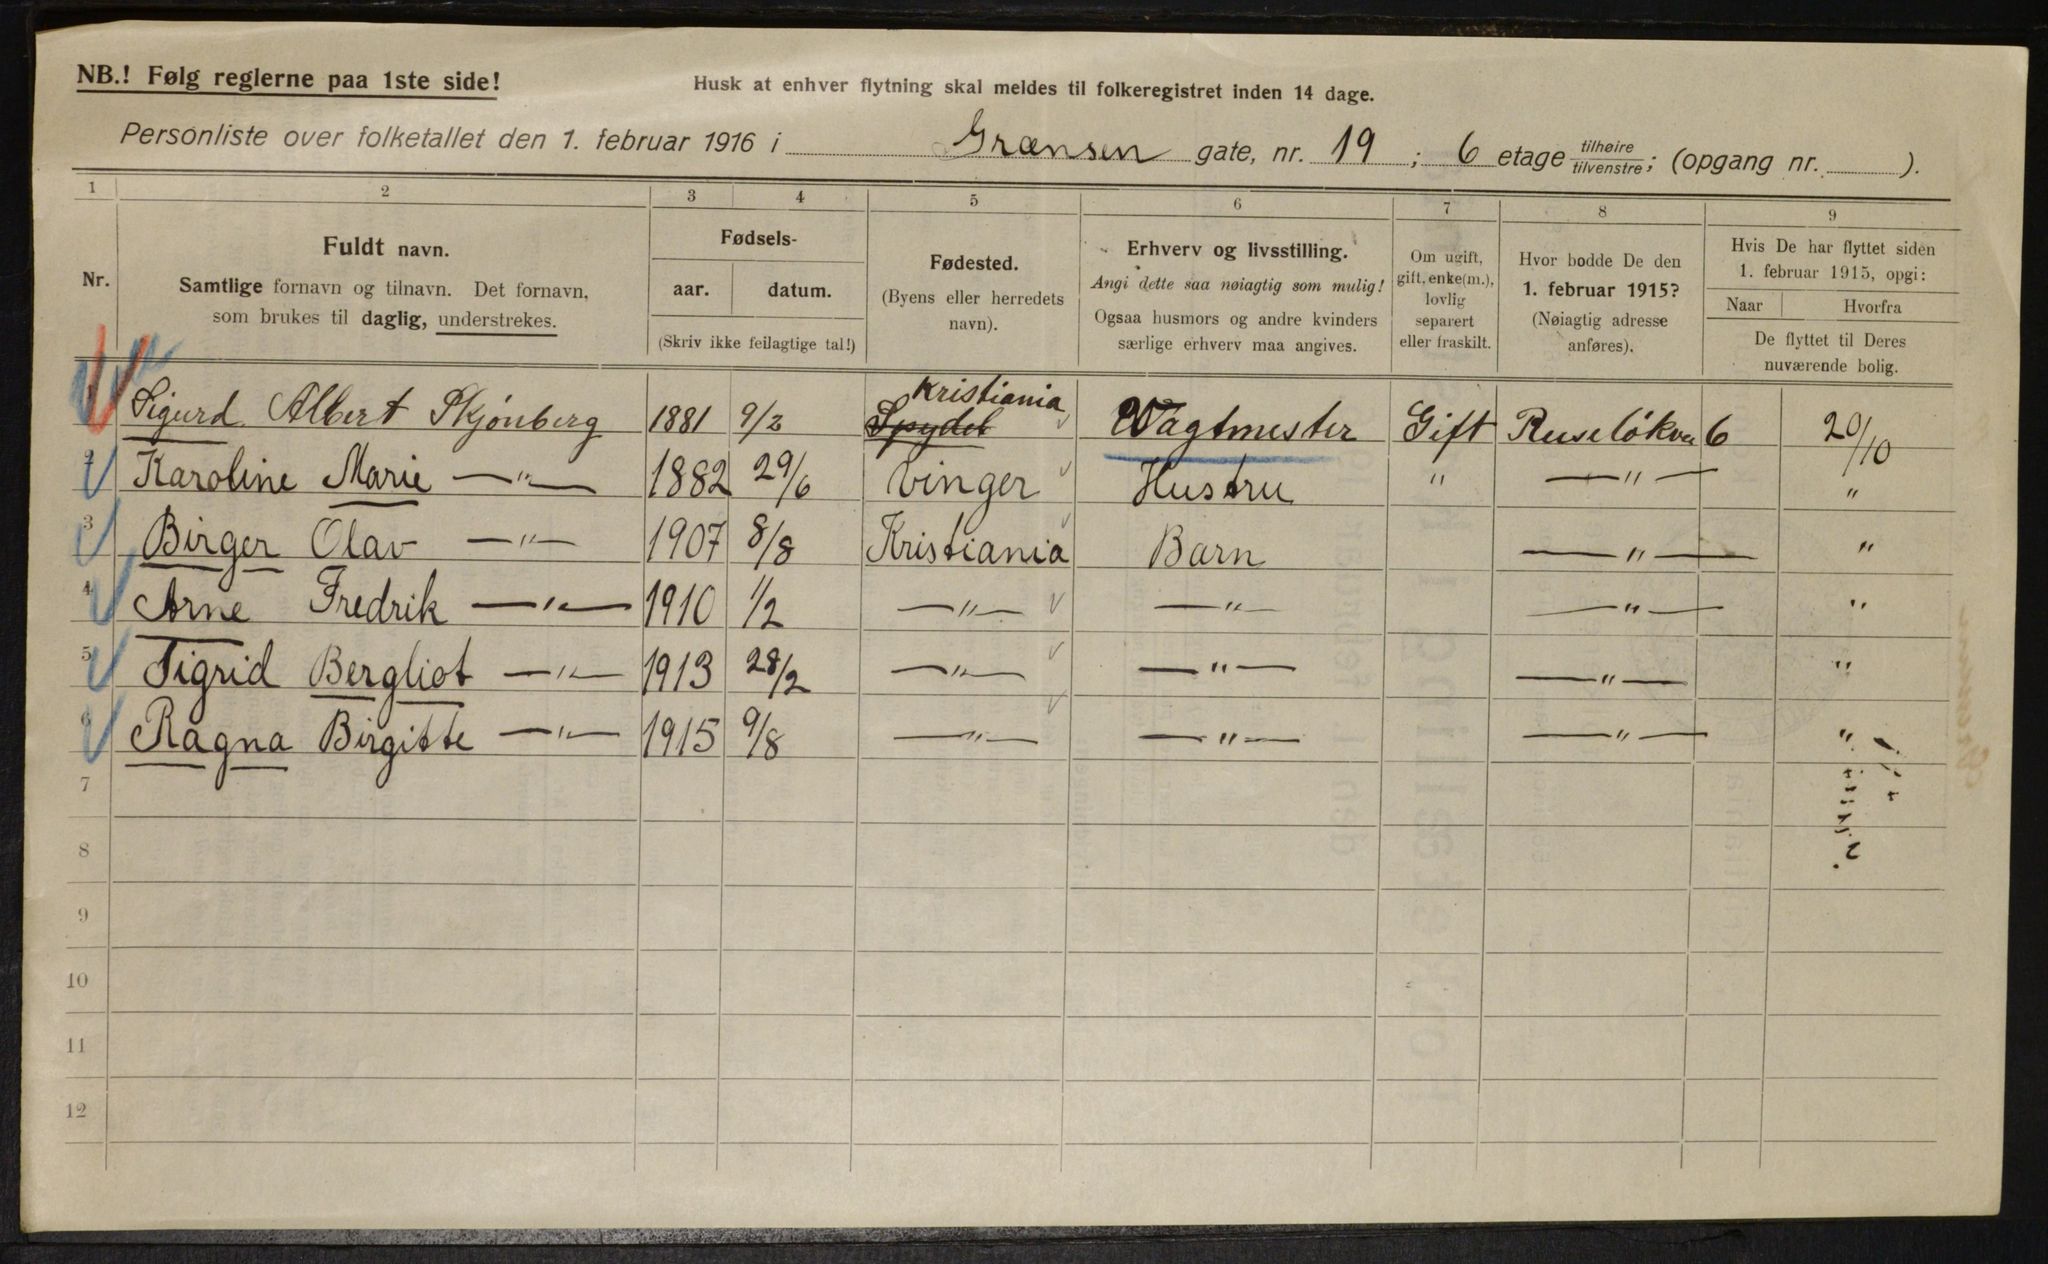 NB.! Følg reglerne paa 1ste side!
Husk at enhver flytning skal meldes til folkeregistret inden 14 dage.
Personliste over folketallet den 1. februar 1916 i Grænsen gate, nr. 19; 6 etage tilhøire/tilvenstre; (opgang nr. ).
1 2 3 4 5 6 7 8 9
Nr.
Fuldt navn.
Samtlige fornavn og tilnavn. Det fornavn,
som brukes til daglig, understrekes.
Fødsels-
aar. datum.
(Skriv ikke feilagtige tal!)
Fødested.
(Byens eller herredets
navn).
Erhverv og livsstilling.
Angi dette saa nøiagtig som mulig!
Ogsaa husmors og andre kvinders
særlige erhverv maa angives.
Om ugift,
gift, enke(m.),
lovlig
separert
eller fraskilt.
Hvor bodde De den
1. februar 1915?
(Nøiagtig adresse
anføres).
Hvis De har flyttet siden
1. februar 1915, opgi:
Naar Hvorfra
De flyttet til Deres
nuværende bolig.
Kristiania
1 Sigurd Albert Skjønberg 1881 9/2 Spydeb Vagtmester Gift Ruseløkvei 6 20/10
2 Karoline Marie —"— 1882 29/6 Vinger Hustru " —"— "
3 Birger Olav —"— 1907 8/8 Kristiania Barn —"— "
4 Arne Fredrik —"— 1910 1/2 —"— —"— —"— "
5 Sigrid Bergliot —"— 1913 28/2 —"— —"— —"— "
6 Ragna Birgitte —"— 1915 9/8 —"— —"— —"— "
7
8
9
10
11
12